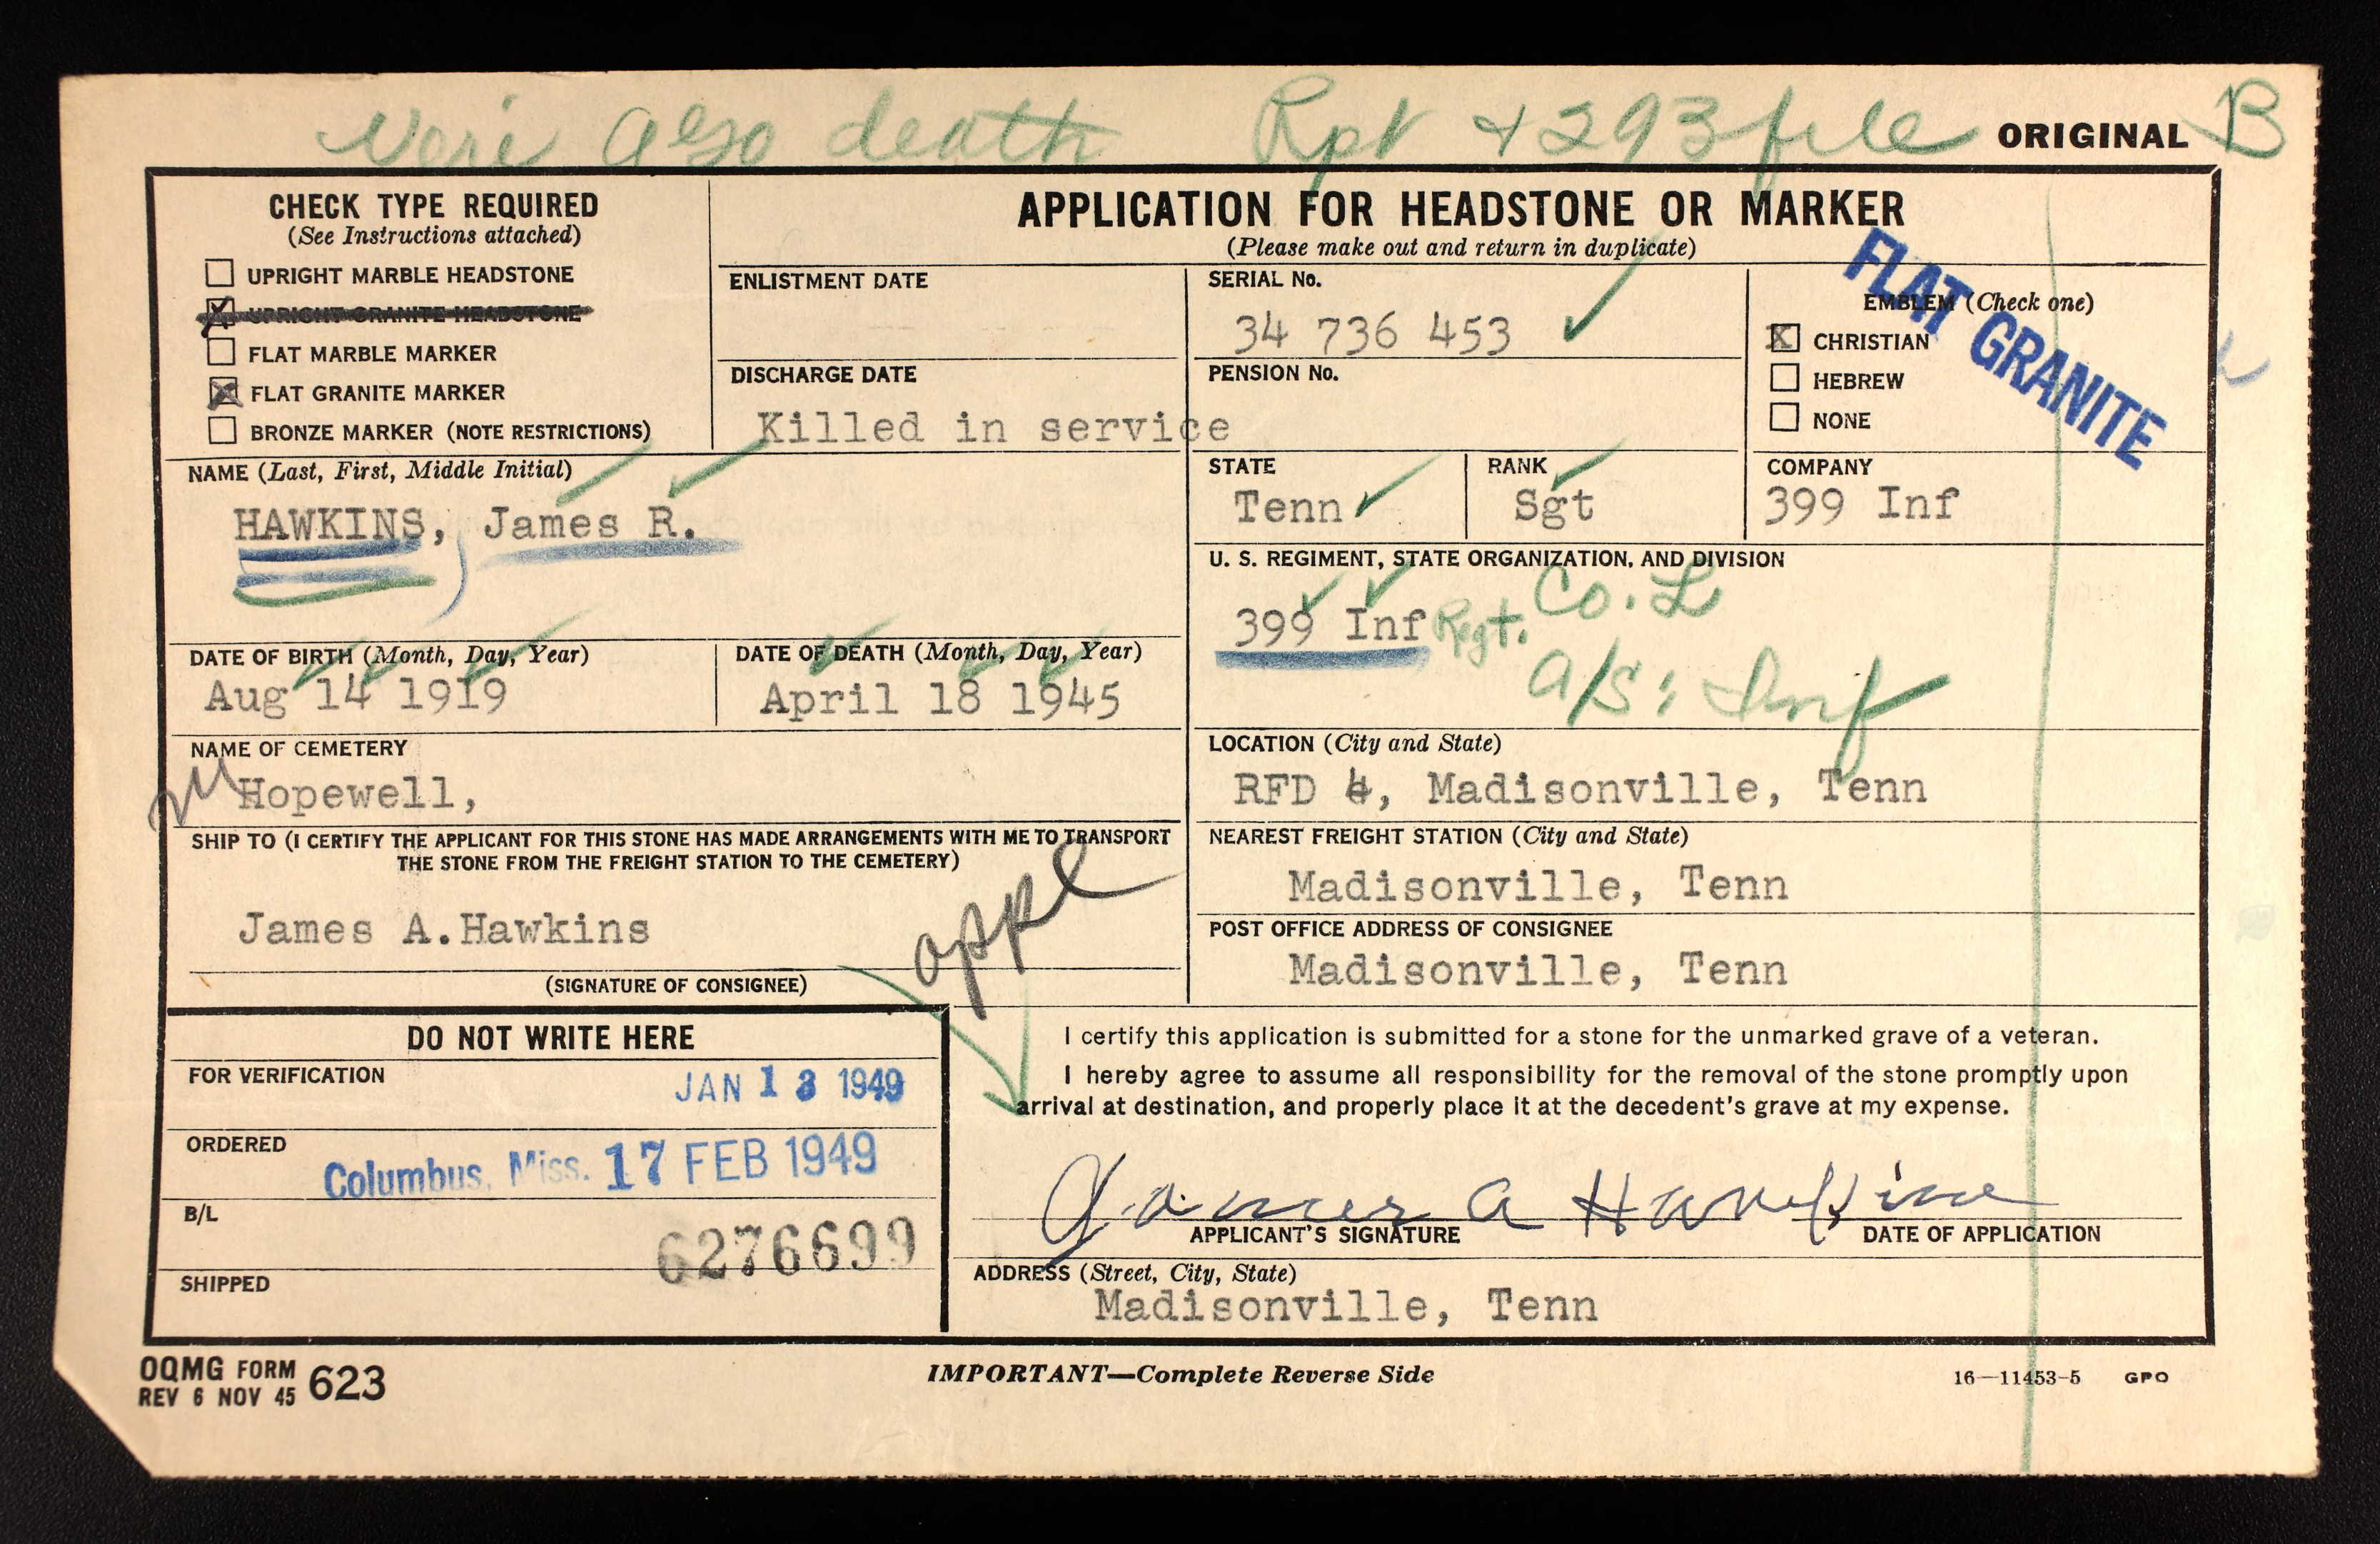 Veri also death Rpt + 293 file ORIGINAL B
CHECK TYPE REQUIRED
(See Instructions attached)
UPRIGHT MARBLE HEADSTONE
UPRIGHT GRANITE HEADSTONE
FLAT MARBLE MARKER
FLAT GRANITE MARKER
BRONZE MARKER (NOTE RESTRICTIONS)
APPLICATION FOR HEADSTONE OR MARKER
(Please make out and return in duplicate)
ENLISTMENT DATE
DISCHARGE DATE
Killed in service
SERIAL No.
34 736 453
PENSION No.
EMBLEM (Check one)
X CHRISTIAN
HEBREW
NONE
FLAT GRANITE
NAME (Last, First, Middle Initial)
HAWKINS, James R.
STATE
Tenn
RANK
Sgt
COMPANY
399 Inf
U. S. REGIMENT, STATE ORGANIZATION, AND DIVISION
399 Inf Regt. Co. L
A/S: Inf
DATE OF BIRTH (Month, Day, Year)
Aug 14 1919
DATE OF DEATH (Month, Day, Year)
April 18 1945
NAME OF CEMETERY
Hopewell,
LOCATION (City and State)
RFD 4, Madisonville, Tenn
SHIP TO (I CERTIFY THE APPLICANT FOR THIS STONE HAS MADE ARRANGEMENTS WITH ME TO TRANSPORT
THE STONE FROM THE FREIGHT STATION TO THE CEMETERY)
James A.Hawkins
appl
(SIGNATURE OF CONSIGNEE)
NEAREST FREIGHT STATION (City and State)
Madisonville, Tenn
POST OFFICE ADDRESS OF CONSIGNEE
Madisonville, Tenn
DO NOT WRITE HERE
FOR VERIFICATION
JAN 13 1949
ORDERED
Columbus, Miss. 17 FEB 1949
B/L
6276699
SHIPPED
I certify this application is submitted for a stone for the unmarked grave of a veteran.
I hereby agree to assume all responsibility for the removal of the stone promptly upon
arrival at destination, and properly place it at the decedent's grave at my expense.
James A Hawkins
APPLICANT'S SIGNATURE
DATE OF APPLICATION
ADDRESS (Street, City, State)
Madisonville, Tenn
OQMG FORM 623
REV 6 NOV 45
IMPORTANT—Complete Reverse Side
16—11453-5 GPO